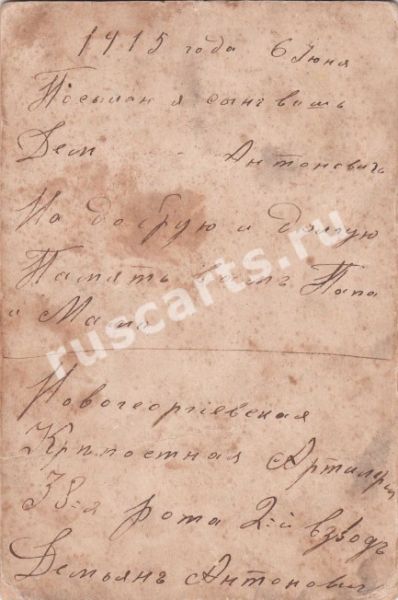 1915 года 6 Июня
Посылаи я сынъ вашъ
Дем Антоновичъ
На добрую и долгую
Память вамъ Папа
и Мама
Новогеоргіевская
Крѣпостная Артилерія
38-я рота 2-й взводъ
Демьянъ Антонович
ruscarts.ru